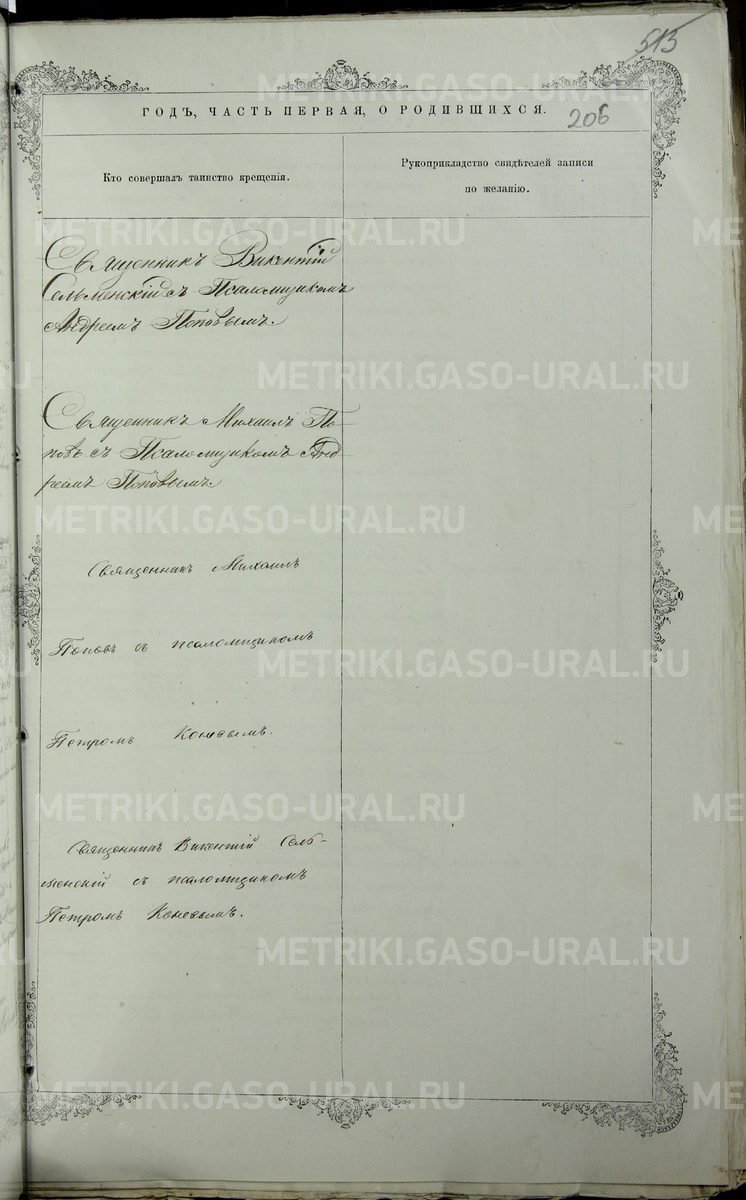 515
ГОДЪ, ЧАСТЬ ПЕРВАЯ, О РОДИВШИХСЯ.
206
Кто совершалъ таинство крещенія.
Рукоприкладство свидѣтелей записи
по желанію.
Священникъ Викентій
Сельменскій съ Псаломщикомъ
Андреемъ Поповымъ.
Священникъ Михаилъ По-
повъ съ Псаломщикомъ Анд
реемъ Поповымъ.
Священникъ Михаилъ
Поповъ съ псаломщикомъ
Петромъ Коневымъ.
Священникъ Викентій Сель-
менскій съ псаломщикомъ
Петромъ Коневымъ.
METRIKI.GASO-URAL.RU